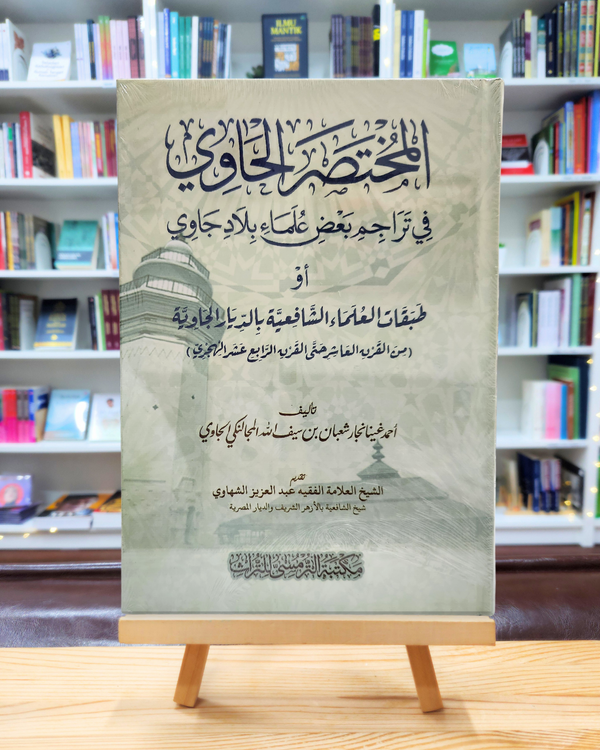 ILMU
MANTIK
المُخْتَصَر الحَاوِي
فِي تَرَاجِمِ بَعْضِ عُلَمَاءِ بِلَادِ جَاوِي
أَوْ
طَبَقَاتُ العُلَمَاءِ الشَّافِعِيَّةِ بِالدِّيَارِ الجَاوِيَّةِ
(مِنَ القَرْنِ العَاشِرِ حَتَّى القَرْنِ الرَّابِعِ عَشَرَ الهِجْرِيّ)
تأليف
أحمد غينانجار شعبان بن سيف الله المجالنكي الجاوي
تقديم
الشيخ العلامة الفقيه عبد العزيز الشهاوي
شيخ الشافعية بالأزهر الشريف والديار المصرية
مكتبة الترمسي للتراث